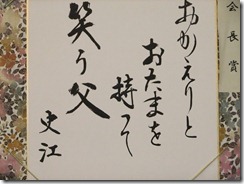 会長賞
おかえりと
おたまを
持って
笑う父
史江